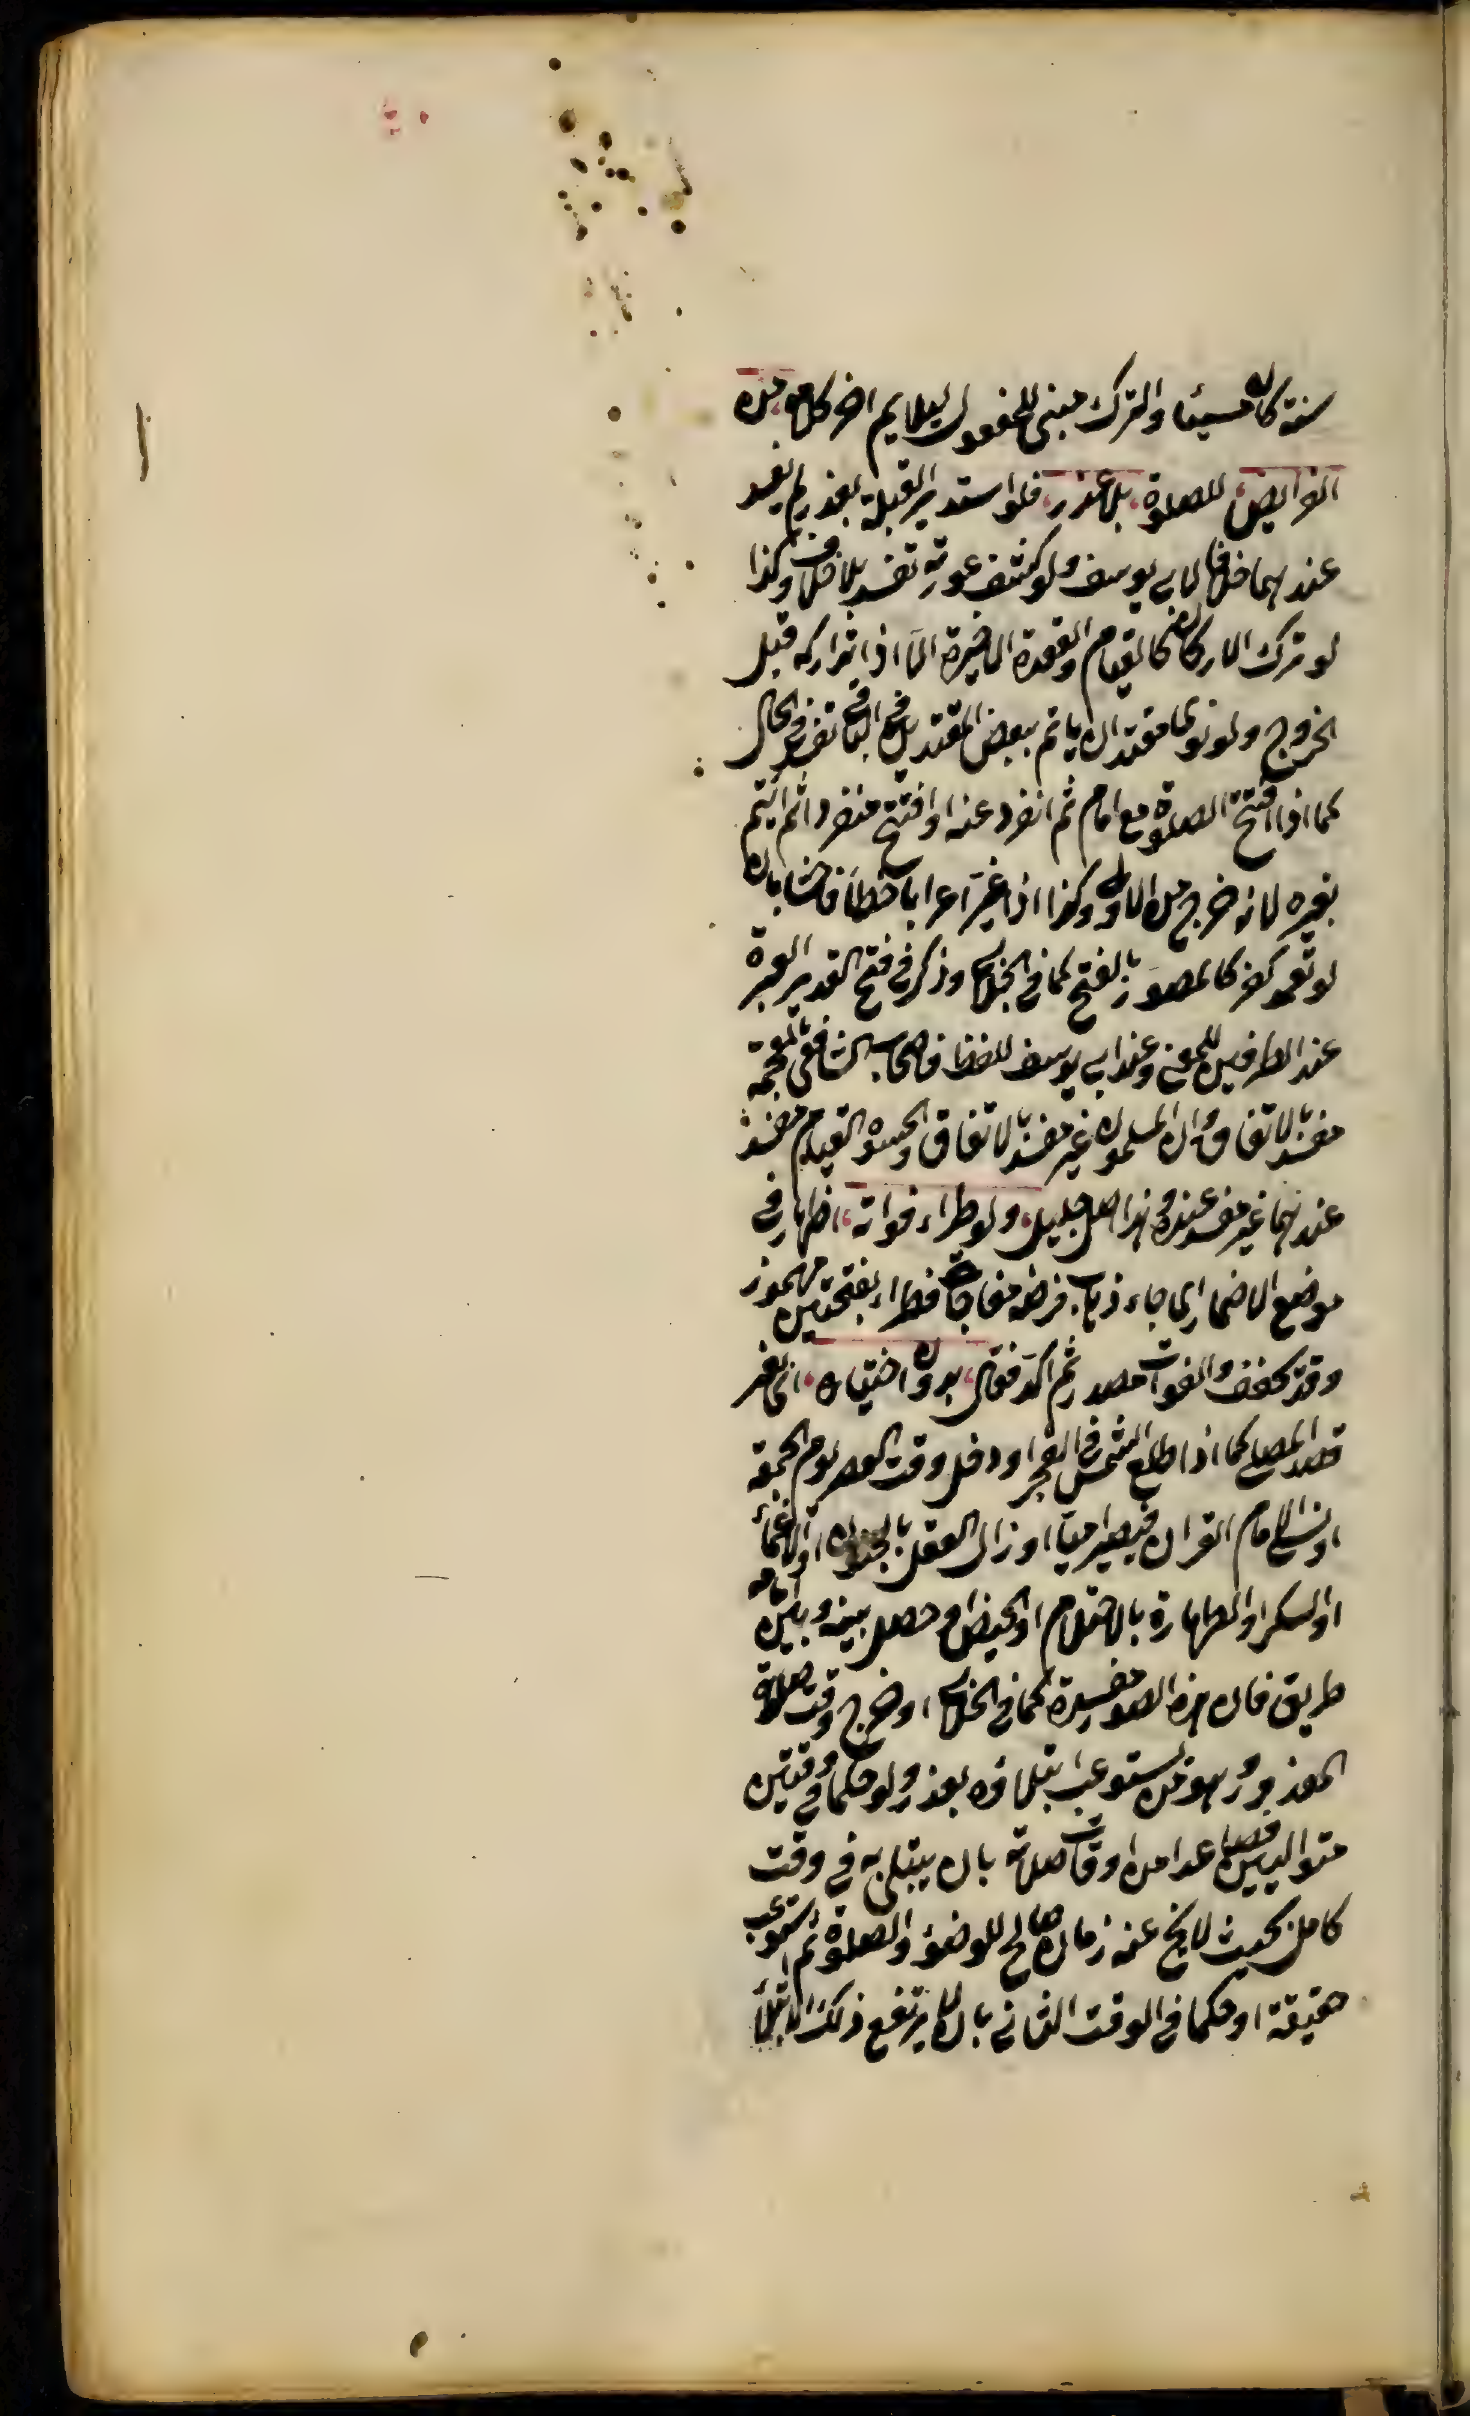 سنة كان مسيئا والترك مبنى للمفعول ليلايم اخر كلامه من
الفرايض للصلوة بلا عذر فلو استدبر القبلة بعذر لم يفسد
عندهما خلافا لابى يوسف ولو كشف عورته تفسد بلا خلاف وكذا
لو ترك الاركان كالقيام والقعدة الاخيرة الا اذا تداركه قبل
الخروج ولو نوى مقتد ان ياتم ببعض المقتدين تفسد فى الحال
كما اذا افتتح الصلوة مع امام ثم انفرد عنه او افتتح منفردا ثم ائتم
بغيره لانه خرج من الاول وكذا اذا غير اعرابا خطأ فاحشا بان
لو تعمد كفر كالمصور بالفتح كما فى الخلاصة وذكر فى فتح القدير العبرة
عند الطرفين للمعنى وعند ابى يوسف للفظ فاصحاب الشافعى بالمعجمة
مفسد بالاتفاق وان المسلمون غير مفسد بالاتفاق والحى القيام مفسد
عندهما غير مفسد عنده وهذا اصل جليل ولو طراء فواته اظهار فى
موضع الاضمار اى جاء ذهاب فرضه مفاجاة فطراء بفتحتين مهموز
وقد يخفف والفوات مصدر ثم اكد فقال بدون اختياره اى بغير
قصد المصلى كما اذا طلع الشمس فى الفجر او دخل وقت العصر يوم الجمعة
او نسى الامام القران فيصير اميا او زال العقل بالجنون او الاغماء
او السكر او الطهارة بالاحتلام او الحيض او حصل بينه وبين امامه
طريق فان هذه الصور مفسدة كما فى الخلاصة او خرج وقت صلوة
المعذور وهو من يستوعب ابتلاؤه بعذر ولو حكما فى وقتين
متواليين فصاعدا من اوقات صلاته بان يبتلى به فى وقت
كامل بحيث لا يخ عنه زمان صالح للوضوء والصلوة ثم يستوعب
حقيقة او حكما فى الوقت الثانى بان لا يرتفع ذلك الابتلاء